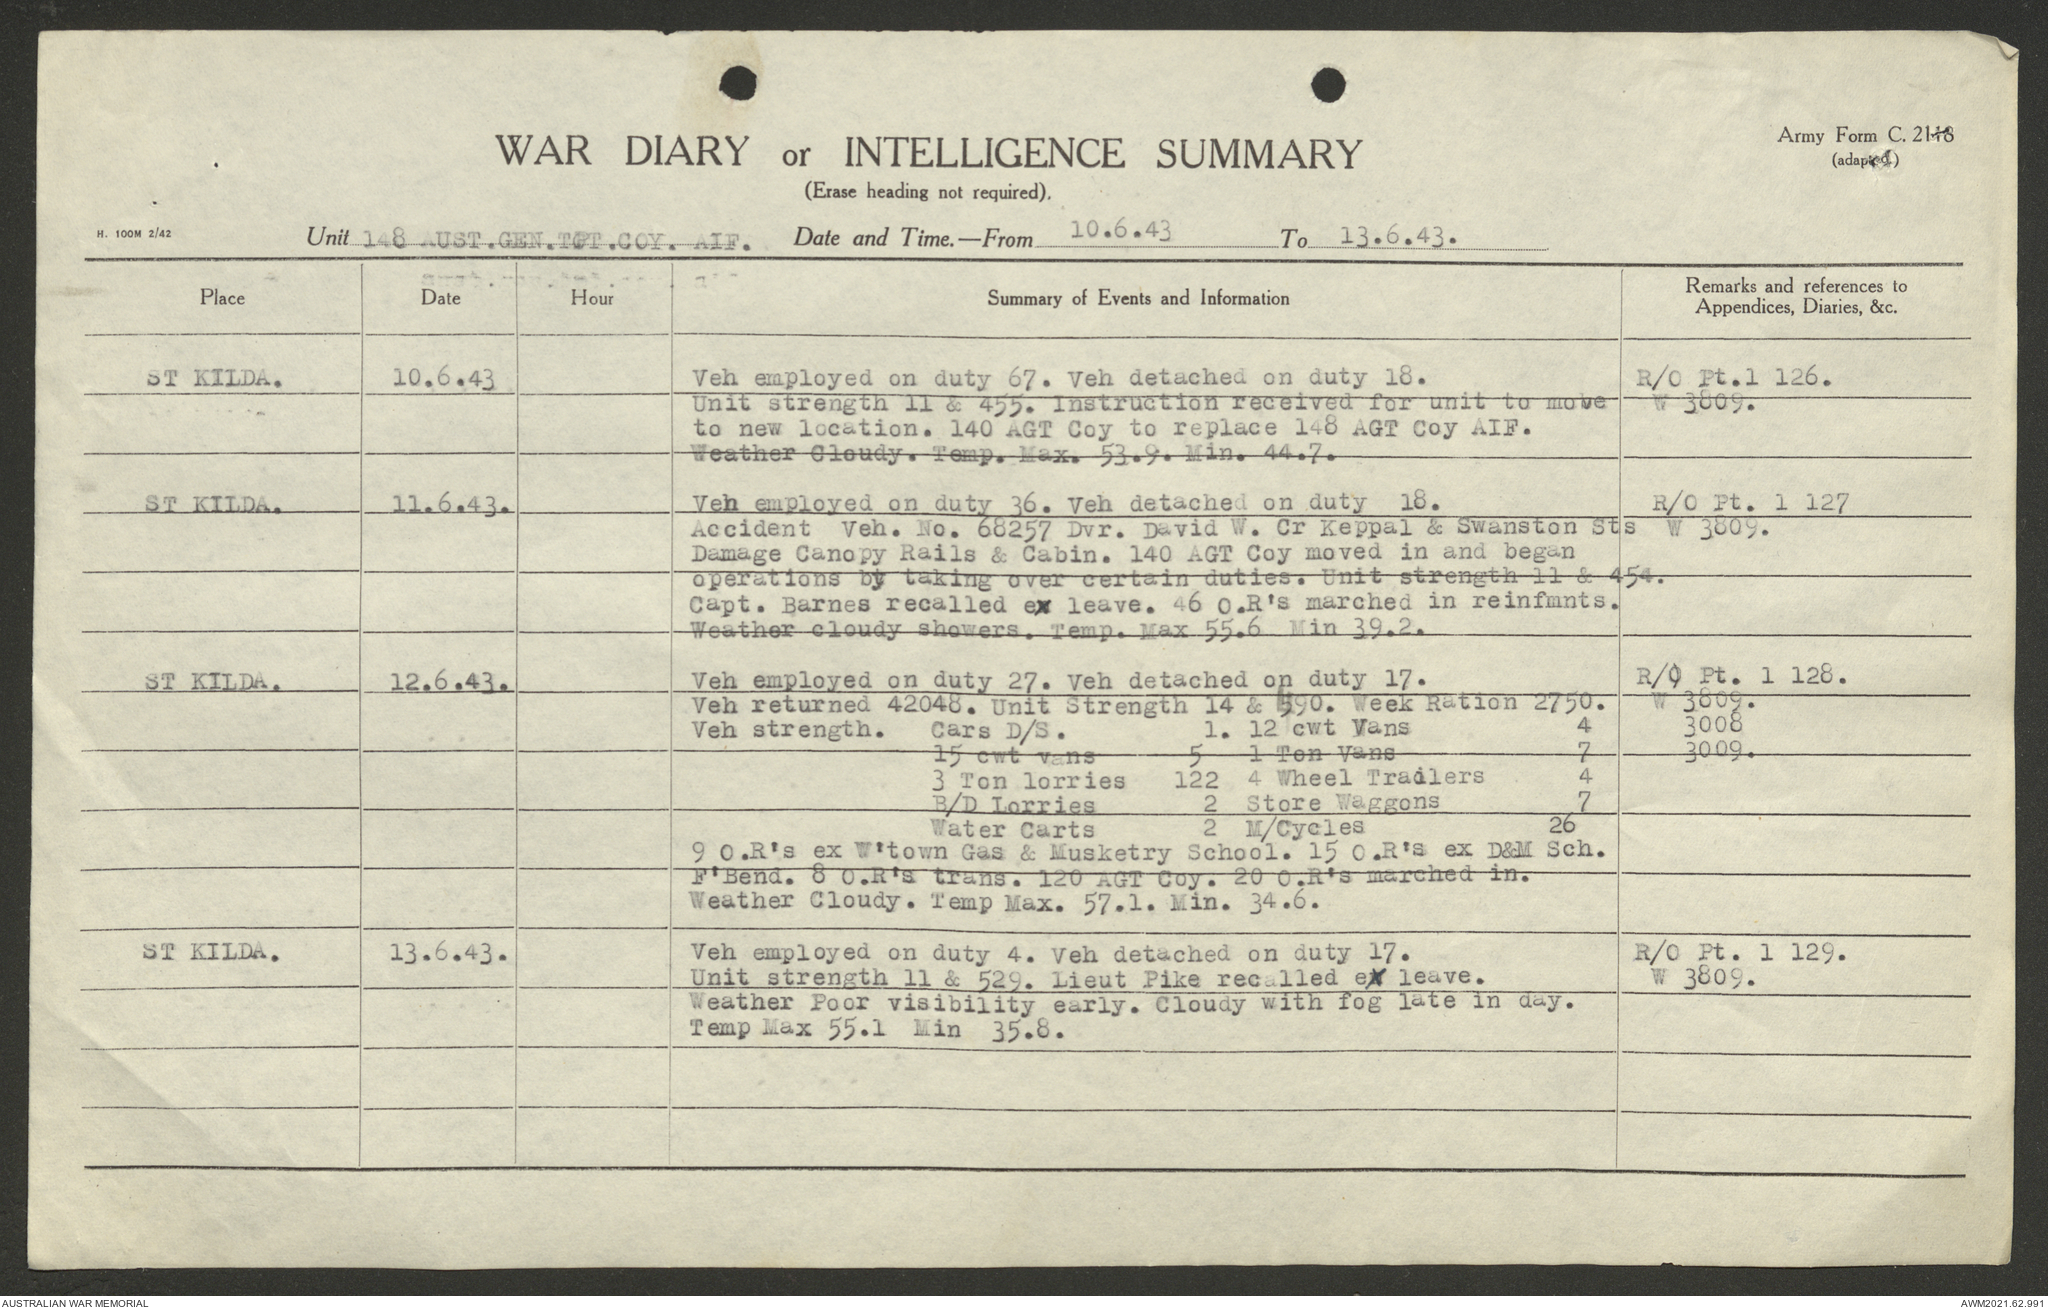 WAR DIARY or INTELLIGENCE SUMMARY
(Erase heading not required).
Army Form C. 2118
(adapted)
H. 100M 2/42
Unit 148 AUST.GEN.TPT.COY. AIF. Date and Time.—From 10.6.43 To 13.6.43.
Place Date Hour Summary of Events and Information Remarks and references to
Appendices, Diaries, &c.
ST KILDA. 10.6.43 Veh employed on duty 67. Veh detached on duty 18. R/O Pt.1 126.
Unit strength 11 & 455. Instruction received for unit to move W 3809.
to new location. 140 AGT Coy to replace 148 AGT Coy AIF.
Weather Cloudy. Temp. Max. 53.9. Min. 44.7.
ST KILDA. 11.6.43. Veh employed on duty 36. Veh detached on duty 18. R/O Pt. 1 127
Accident Veh. No. 68257 Dvr. David W. Cr Keppal & Swanston Sts W 3809.
Damage Canopy Rails & Cabin. 140 AGT Coy moved in and began
operations by taking over certain duties. Unit strength 11 & 454.
Capt. Barnes recalled ex leave. 46 O.R's marched in reinfmnts.
Weather cloudy showers. Temp. Max 55.6 Min 39.2.
ST KILDA. 12.6.43. Veh employed on duty 27. Veh detached on duty 17. R/O Pt. 1 128.
Veh returned 42048. Unit Strength 14 & 590. Week Ration 2750. W 3809.
Veh strength. Cars D/S. 1. 12 cwt Vans 4 3008
15 cwt vans 5 1 Ton Vans 7 3009.
3 Ton lorries 122 4 Wheel Trailers 4
B/D Lorries 2 Store Waggons 7
Water Carts 2 M/Cycles 26
9 O.R's ex W'town Gas & Musketry School. 15 O.R's ex D&M Sch.
F'Bend. 8 O.R's trans. 120 AGT Coy. 20 O.R's marched in.
Weather Cloudy. Temp Max. 57.1. Min. 34.6.
ST KILDA. 13.6.43. Veh employed on duty 4. Veh detached on duty 17. R/O Pt. 1 129.
Unit strength 11 & 529. Lieut Pike recalled ex leave. W 3809.
Weather Poor visibility early. Cloudy with fog late in day.
Temp Max 55.1 Min 35.8.
AUSTRALIAN WAR MEMORIAL AWM2021.62.991